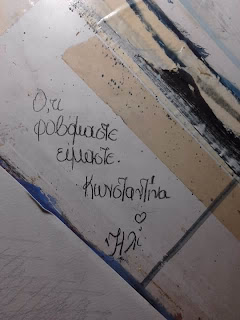 Ό,τι
φοβόμαστε
είμαστε.
Κωνσταντίνα
♡